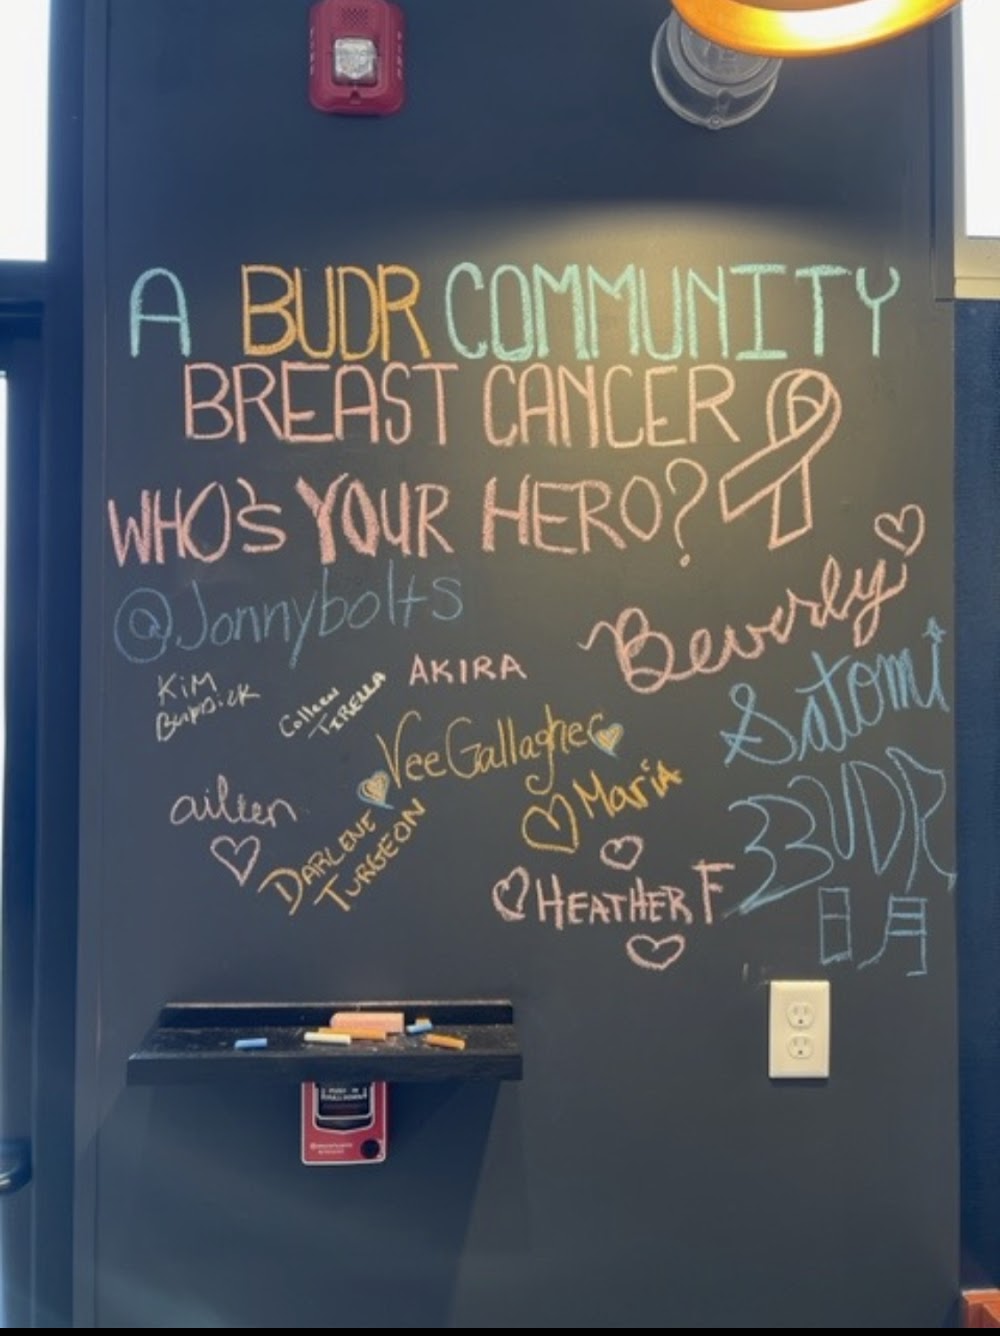 A BUDR COMMUNITY
BREAST CANCER
WHO'S YOUR HERO?
@Jonnybolts
Beverly
KiM
BurDick
Colleen
TIRELLA
AKIRA
Satomi
VeeGallagher
Maria
aileen
DARLENE
TURGEON
HEATHER F
BUDR
日月